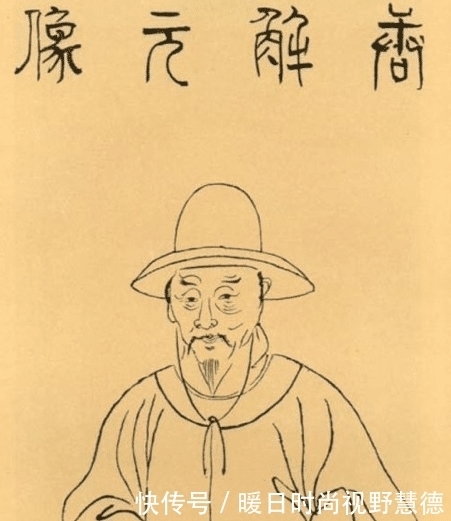 唐解元像
快传号 / 暖日时尚视野慧德